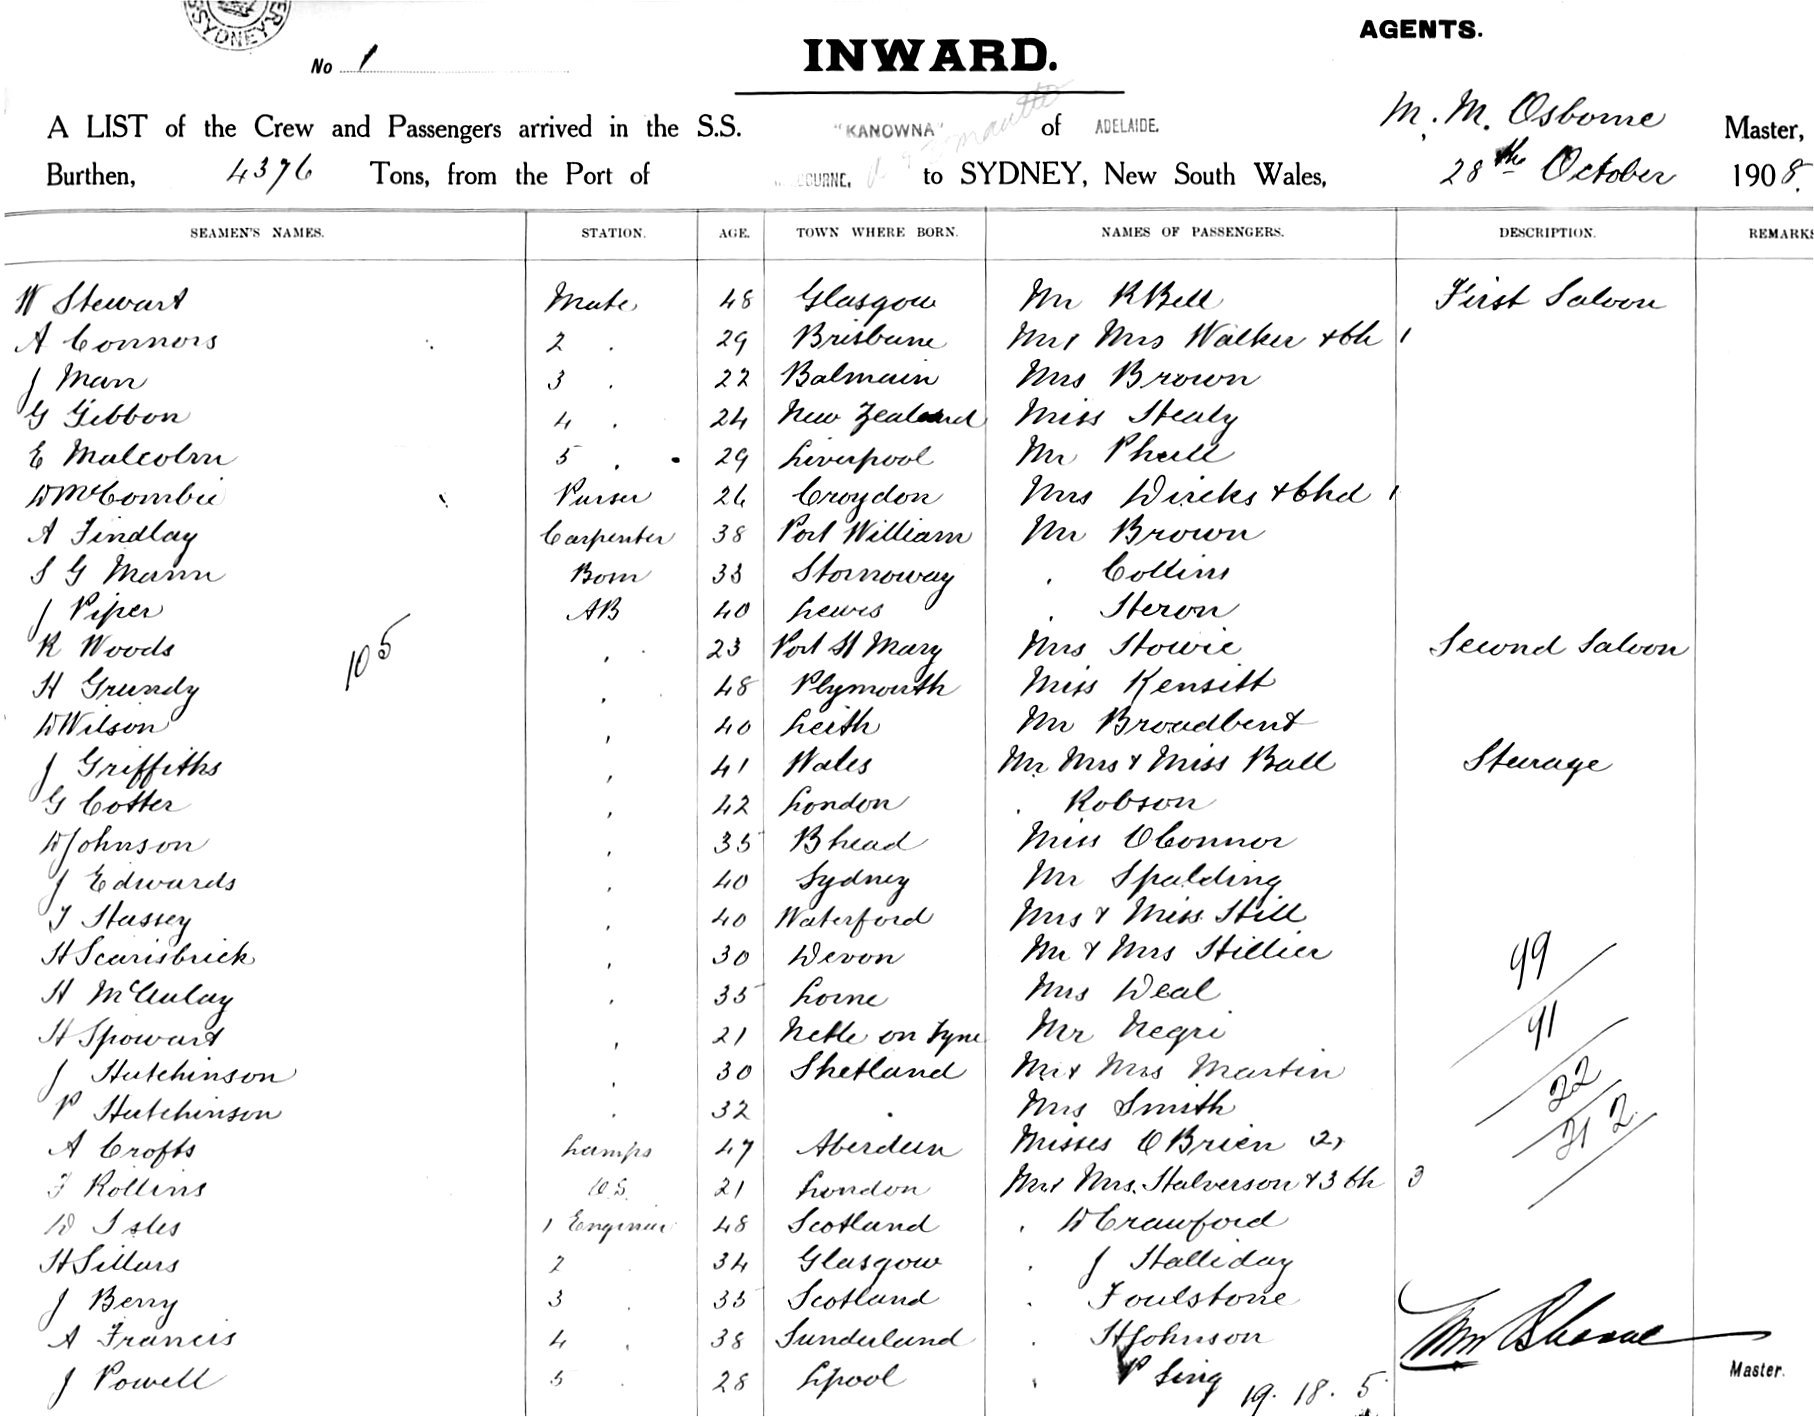 SYDNEY
AGENTS.
No 1
INWARD.
M. M. Osborne Master,
A LIST of the Crew and Passengers arrived in the S.S. "KANOWNA" of ADELAIDE.
Burthen, 4376 Tons, from the Port of to SYDNEY, New South Wales, 28th October 1908.
SEAMEN'S NAMES. STATION. AGE. TOWN WHERE BORN. NAMES OF PASSENGERS. DESCRIPTION. REMARKS
W Stewart Mate 48 Glasgow Mr R Bell First Saloon
A Connors 2 . 29 Brisbane Mr & Mrs Walker & Ch 1
J Man 3 . 22 Balmain Mrs Brown
G Gibbon 4 . 24 New Zealand Miss Healy
E Malcolm 5 . 29 Liverpool Mr
W McCombie Purser 26 Croydon Mrs Dircks & Chd 1
A Findlay Carpenter 38 Port William Mr Brown
S G Mann Bosn 33 Stornoway . Collins
J Piper AB 40 Lewis . Heron
R Woods 105 , 23 Port St Mary Mrs Howie Second Saloon
H Grundy , 48 Plymouth Miss Kensitt
W Wilson , 40 Leith Mr Broadbent
J Griffiths , 41 Wales Mr Mrs & Miss Ball Steerage
G Cotter , 42 London . Robson
W Johnson , 35 B head Miss O'Connor
J Edwards , 40 Sydney Mr Spalding
T Hassey , 40 Waterford Mrs & Miss Hill
H Scarisbrick , 30 Devon Mr & Mrs Hillier 49
H McAulay , 35 Lorne Mrs Deal
H Spowart , 21 Nctle on Tyne Mr Negri 41
J Hutchinson , 30 Shetland Mr & Mrs Martin
P Hutchinson . 32 . Mrs Smith 22
A Crofts Lamps 47 Aberdeen Misses O'Brien (2)
F Rollins O.S. 21 London Mr & Mrs. Halverson & 3 Ch 3
W Isles 1 Engineer 48 Scotland . W Crawford
H Sillars 2 . 34 Glasgow . J Halliday
J Berry 3 . 35 Scotland . Foulstone
A Francis 4 . 38 Sunderland . H Johnson
J Powell 5 . 28 Lpool . P Sing
Master.
19. 18. 5